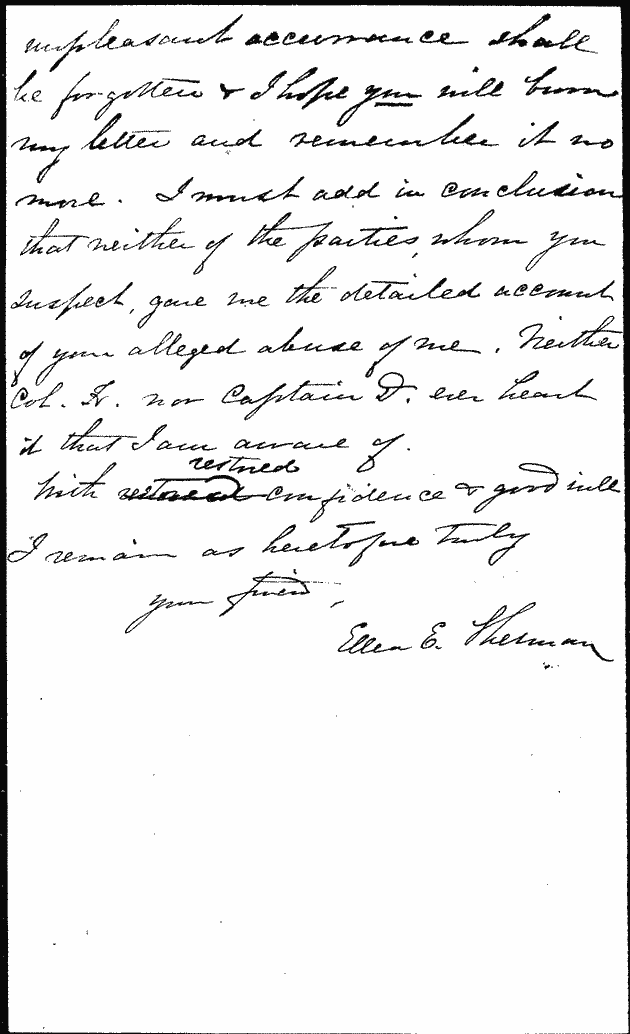 unpleasant occurrance shall
be forgotten & I hope you will burn
my letter and remember it no
more. I must add in conclusion
that neither of the parties, whom you
suspect, gave me the detailed account
of your alleged abuse of me. Neither
Col. Fr. nor Captain D. ever heard
it that I am aware of.
restored
With restored confidence & good will
I remain as heretofore truly
your friend,
Ellen E. Sherman